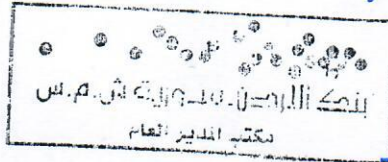 بنك الأردن - سورية ش.م.س
مكتب المدير العام